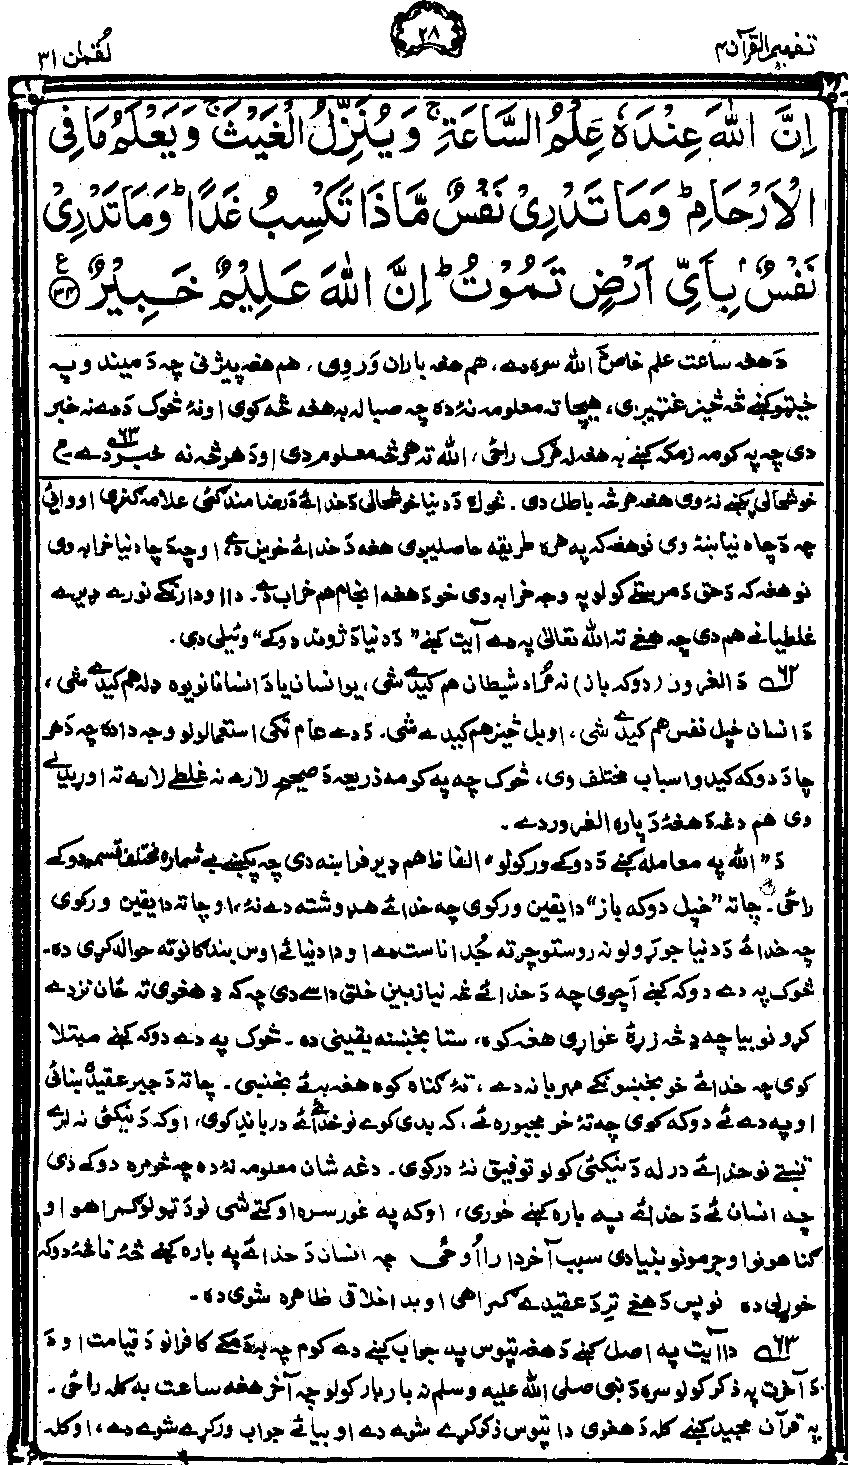 تفہیم القرآن ۴
۲۸
لقمٰن ۳۱
اِنَّ اللّٰهَ عِنْدَهٗ عِلْمُ السَّاعَةِ ۚ وَيُنَزِّلُ الْغَيْثَ ۚ وَيَعْلَمُ مَا فِي
الْاَرْحَامِ ؕ وَمَا تَدْرِيْ نَفْسٌ مَّاذَا تَكْسِبُ غَدًا ؕ وَمَا تَدْرِيْ
نَفْسٌۢ بِاَيِّ اَرْضٍ تَمُوْتُ ؕ اِنَّ اللّٰهَ عَلِيْمٌ خَبِيْرٌ ۝۳۴ ع
دَ هغه ساعت علم خاص الله سره دے، هم هغه باران وَروی، هم هغه پیژنی چه دَ میندو په
خیټو کښے څه څیز غټیږی، هیچا ته معلومه نۀ ده چه صبا له به هغه څه کوی او نۀ څوک دے نه خبر
دی چه په کومه زمکه کښے به هغه له مرګ راځی، الله ته هر څه معلوم دی او دَ هر څه نه خبر دے ۶۳ ع
خوشحالئ کښے نۀ وی هغه هر څه باطل دی. څوک دَ دنیا خوشحالی دَ خدائے دَ رضامندئ علامه ګنړی او وائی
چه دَ چا دنیا ښۀ وی نو هغه که په هره طریقه حاصلیږی هغه دَ خدائے خوښ دے، او چه دَ چا دنیا خرابه وی
نو هغه که دَ حق دَ مرستے کولو په وجه خرابه وی خو دَ هغه انجام هم خراب دے. دا او دا رنګے نورے ډیرے
غلطیانے هم دی چه هغے ته الله تعالیٰ په دے آیت کښے ”دَ دنیا دَ ژوند دوکے“ وئیلی دی.
۶۲ دَ الغرور (دوکه باز) نه مُراد شیطان هم کیدے شی، یو انسان یا دَ انسانانو یوه ډله هم کیدے شی،
دَ انسان خپل نفس هم کیدے شی، او بل څیز هم کیدے شی. دَ دے عام ټکی استعمالولو وجه دا ده چه دَ هر
چا دَ دوکه کیدو اسباب مختلف وی، څوک چه په کومه ذریعه دَ صحیح لارے نه غلطے لارے ته اوړیدلے
وی هم دغه دَ هغۀ دَ پاره الغرور دے.
دَ ”الله په معامله کښے دَ دوکے ورکولو“ الفاظ هم ډیر فراخه دی چه پکښے بے شماره مختلف قسمه دوکے
راځی. چا ته ”خپل دوکه باز“ دا یقین ورکوی چه خدائے هډو شته دے نۀ، او چا ته دا یقین ورکوی
چه خدائے دَ دنیا جوړولو نه روستو چرته جُدا ناست دے او دا دنیا ئے اوس بندګانو ته حواله کړی ده.
څوک په دے دوکه کښے اچوی چه دَ خدائے څه نیازبین خلق داسے دی چه که دَ هغوی ته ځان نزدے
کړو نو بیا چه دِ څه زړۀ غواړی هغه کوه، ستا بخښنه یقینی ده. څوک په دے دوکه کښے مبتلا
کوی چه خدائے خو بخښونکے مهربانه دے، تۀ ګناه کوه هغه به ئے بخښی. چا ته دَ جبر عقیده بنائی
او په دے ئے دوکه کوی چه تۀ خو مجبوره ئے، که بدی کوے نو خدائے ئے درباندے کوی، او که دَ نیکئ نه لرے
تښتے نو خدائے درله دَ نیکئ کولو توفیق نۀ درکوی. دغه شان معلومه نۀ ده چه څومره دوکے دی
چه انسان ئے دَ خدائے په باره کښے خوری، او که په غور سره اوکتے شی نو دَ ټولو ګمراهو او
ګناهونو او جرمونو بنیادی سبب آخر دا رااوځی چه انسان دَ خدائے په باره کښے څۀ نا څۀ دوکه
خوړلی ده نو پس دَ هغے تر دَ عقیدے ګمراهی او بد اخلاقی ظاهره شوی ده.
۶۳ دا آیت په اصل کښے دَ هغه تپوس په جواب کښے دے کوم چه به دَ مکے کافرانو دَ قیامت او دَ
دَ آخرت په ذکر کولو سره دَ نبی صلی الله علیه وسلم نه بار بار کولو چه آخر هغه ساعت به کله راځی.
په قرآن مجید کښے کله دَ هغوی دا تپوس ذکر کړے شوے دے او بیا ئے جواب ورکړے شوے دے، او کله